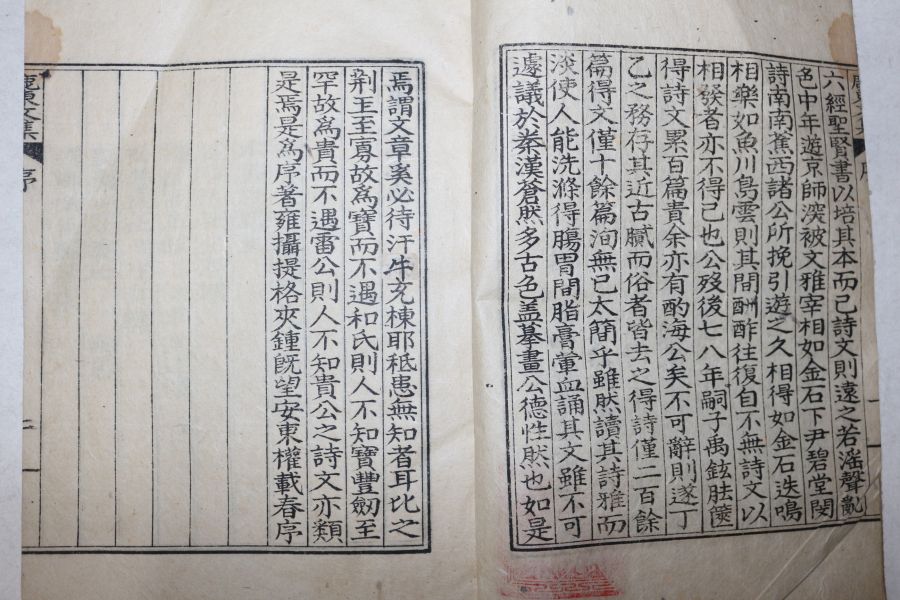 六經聖賢書以培其本而已詩文則遠之若滛聲亂
色中年遊京師深被文雅宰相如金石下尹碧堂閔
詩南南蕉西諸公所挽引遊之久相得如金石迭鳴
相樂如魚川鳥雲則其間酬酢往復自不無詩文以
相發者亦不得已也公歿後七八年嗣子禹鉉胠篋
得詩文累百篇貴余亦有酌海公矣不可辭則遂丁
乙之務存其近古膩而俗者皆去之得詩僅二百餘
篇得文僅十餘篇洵無已太簡乎雖然讀其詩雅而
淡使人能洗滌得膓胃間脂膏葷血誦其文雖不可
遽議於秦漢蒼然多古色盖摹畫公德性然也如是
焉謂文章奚必待汗牛充棟耶秪患無知者耳比之
荆玉至寡故爲寶而不遇和氏則人不知寶豐劒至
罕故爲貴而不遇雷公則人不知貴公之詩文亦類
是焉是爲序著雍攝提格夾鍾旣望安東權載春序
文集 序